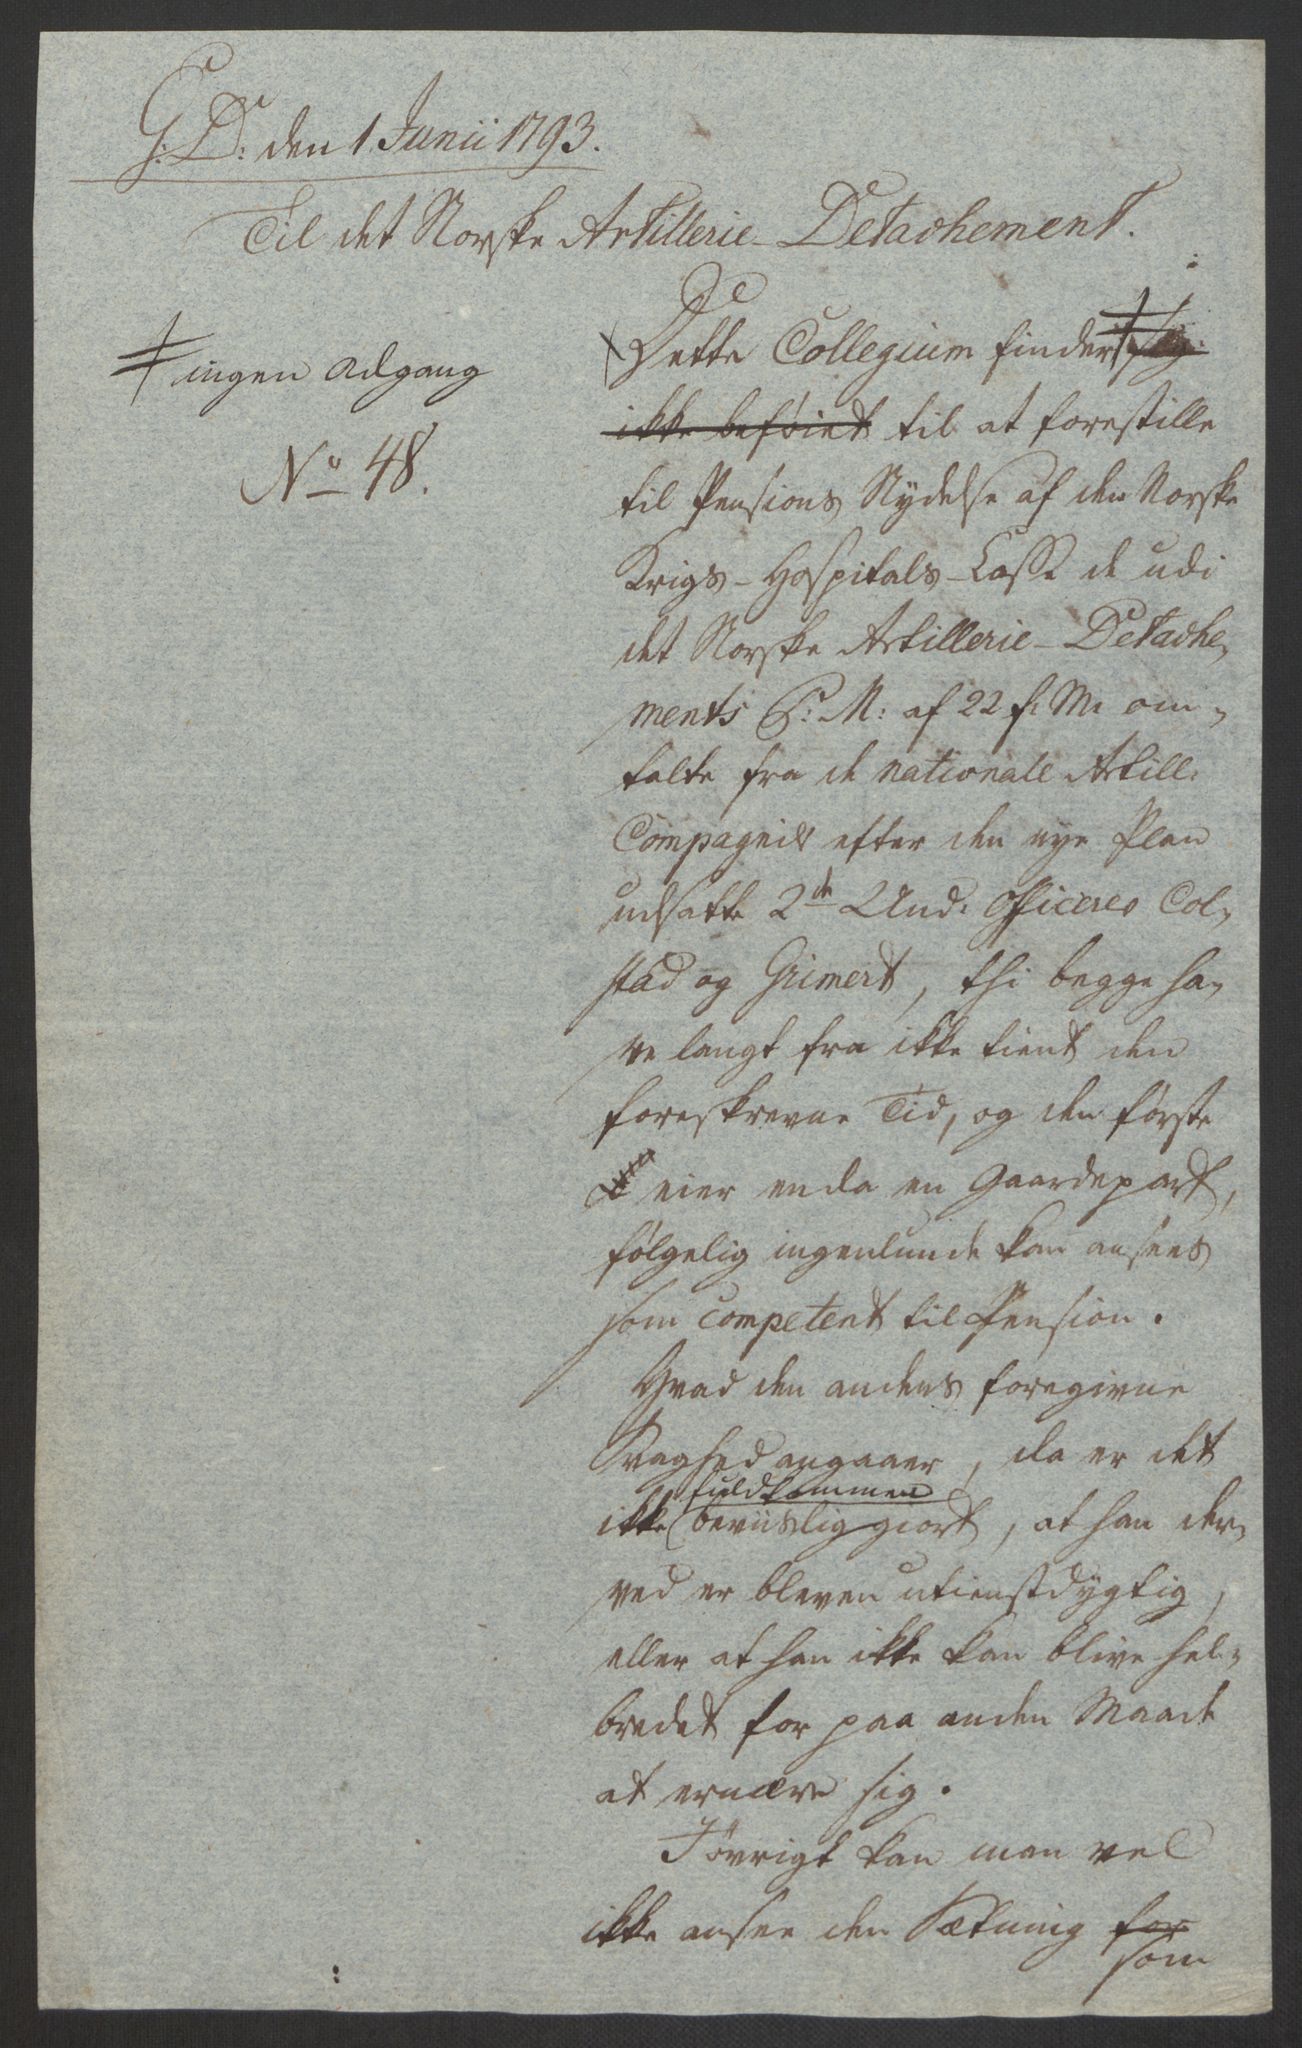 G: D: den 1 Junii 1793.
Til det Norske Artillerie-Detachement.
ingen Adgang
No 48.
Dette Collegium finder sig
ikke beføiet til at forestille
til Pensions Nydelse af den Norske
Krigs-Hospitals-Casse de udi
det Norske Artillerie-Detache,
ments P: M: af 22 f: M: om,
talte fra de nationale Artill:
Compagnier efter den nye Plan
udsatte 2de Und: Officeres Col,
stad og Grimert, thi begge ha,
ve langt fra ikke tient den
foreskrevne Tid, og den første
eier enda en Gaardepart,
følgelig ingenlunde kan ansees
som competent til Pension.
Hvad den andens foregivne
Svaghed angaaer, da er det
fuldkommen
ikke beviisliggiort, at han der,
ved er bleven utienstdygtig,
eller at han ikke kan blive hel,
bredet for paa anden Maade
at ernære sig.
Iøvrigt kan man vel
ikke ansee den Sætning for
som